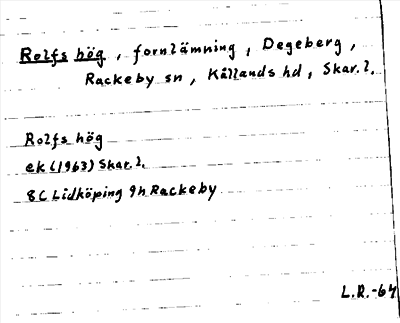 Rolfs hög, fornlämning, Degeberg,
Rackeby sn, Kållands hd, Skar. l.
Rolfs hög
ek (1963) Skar. l.
8C Lidköping 9h Rackeby
L.R.-64